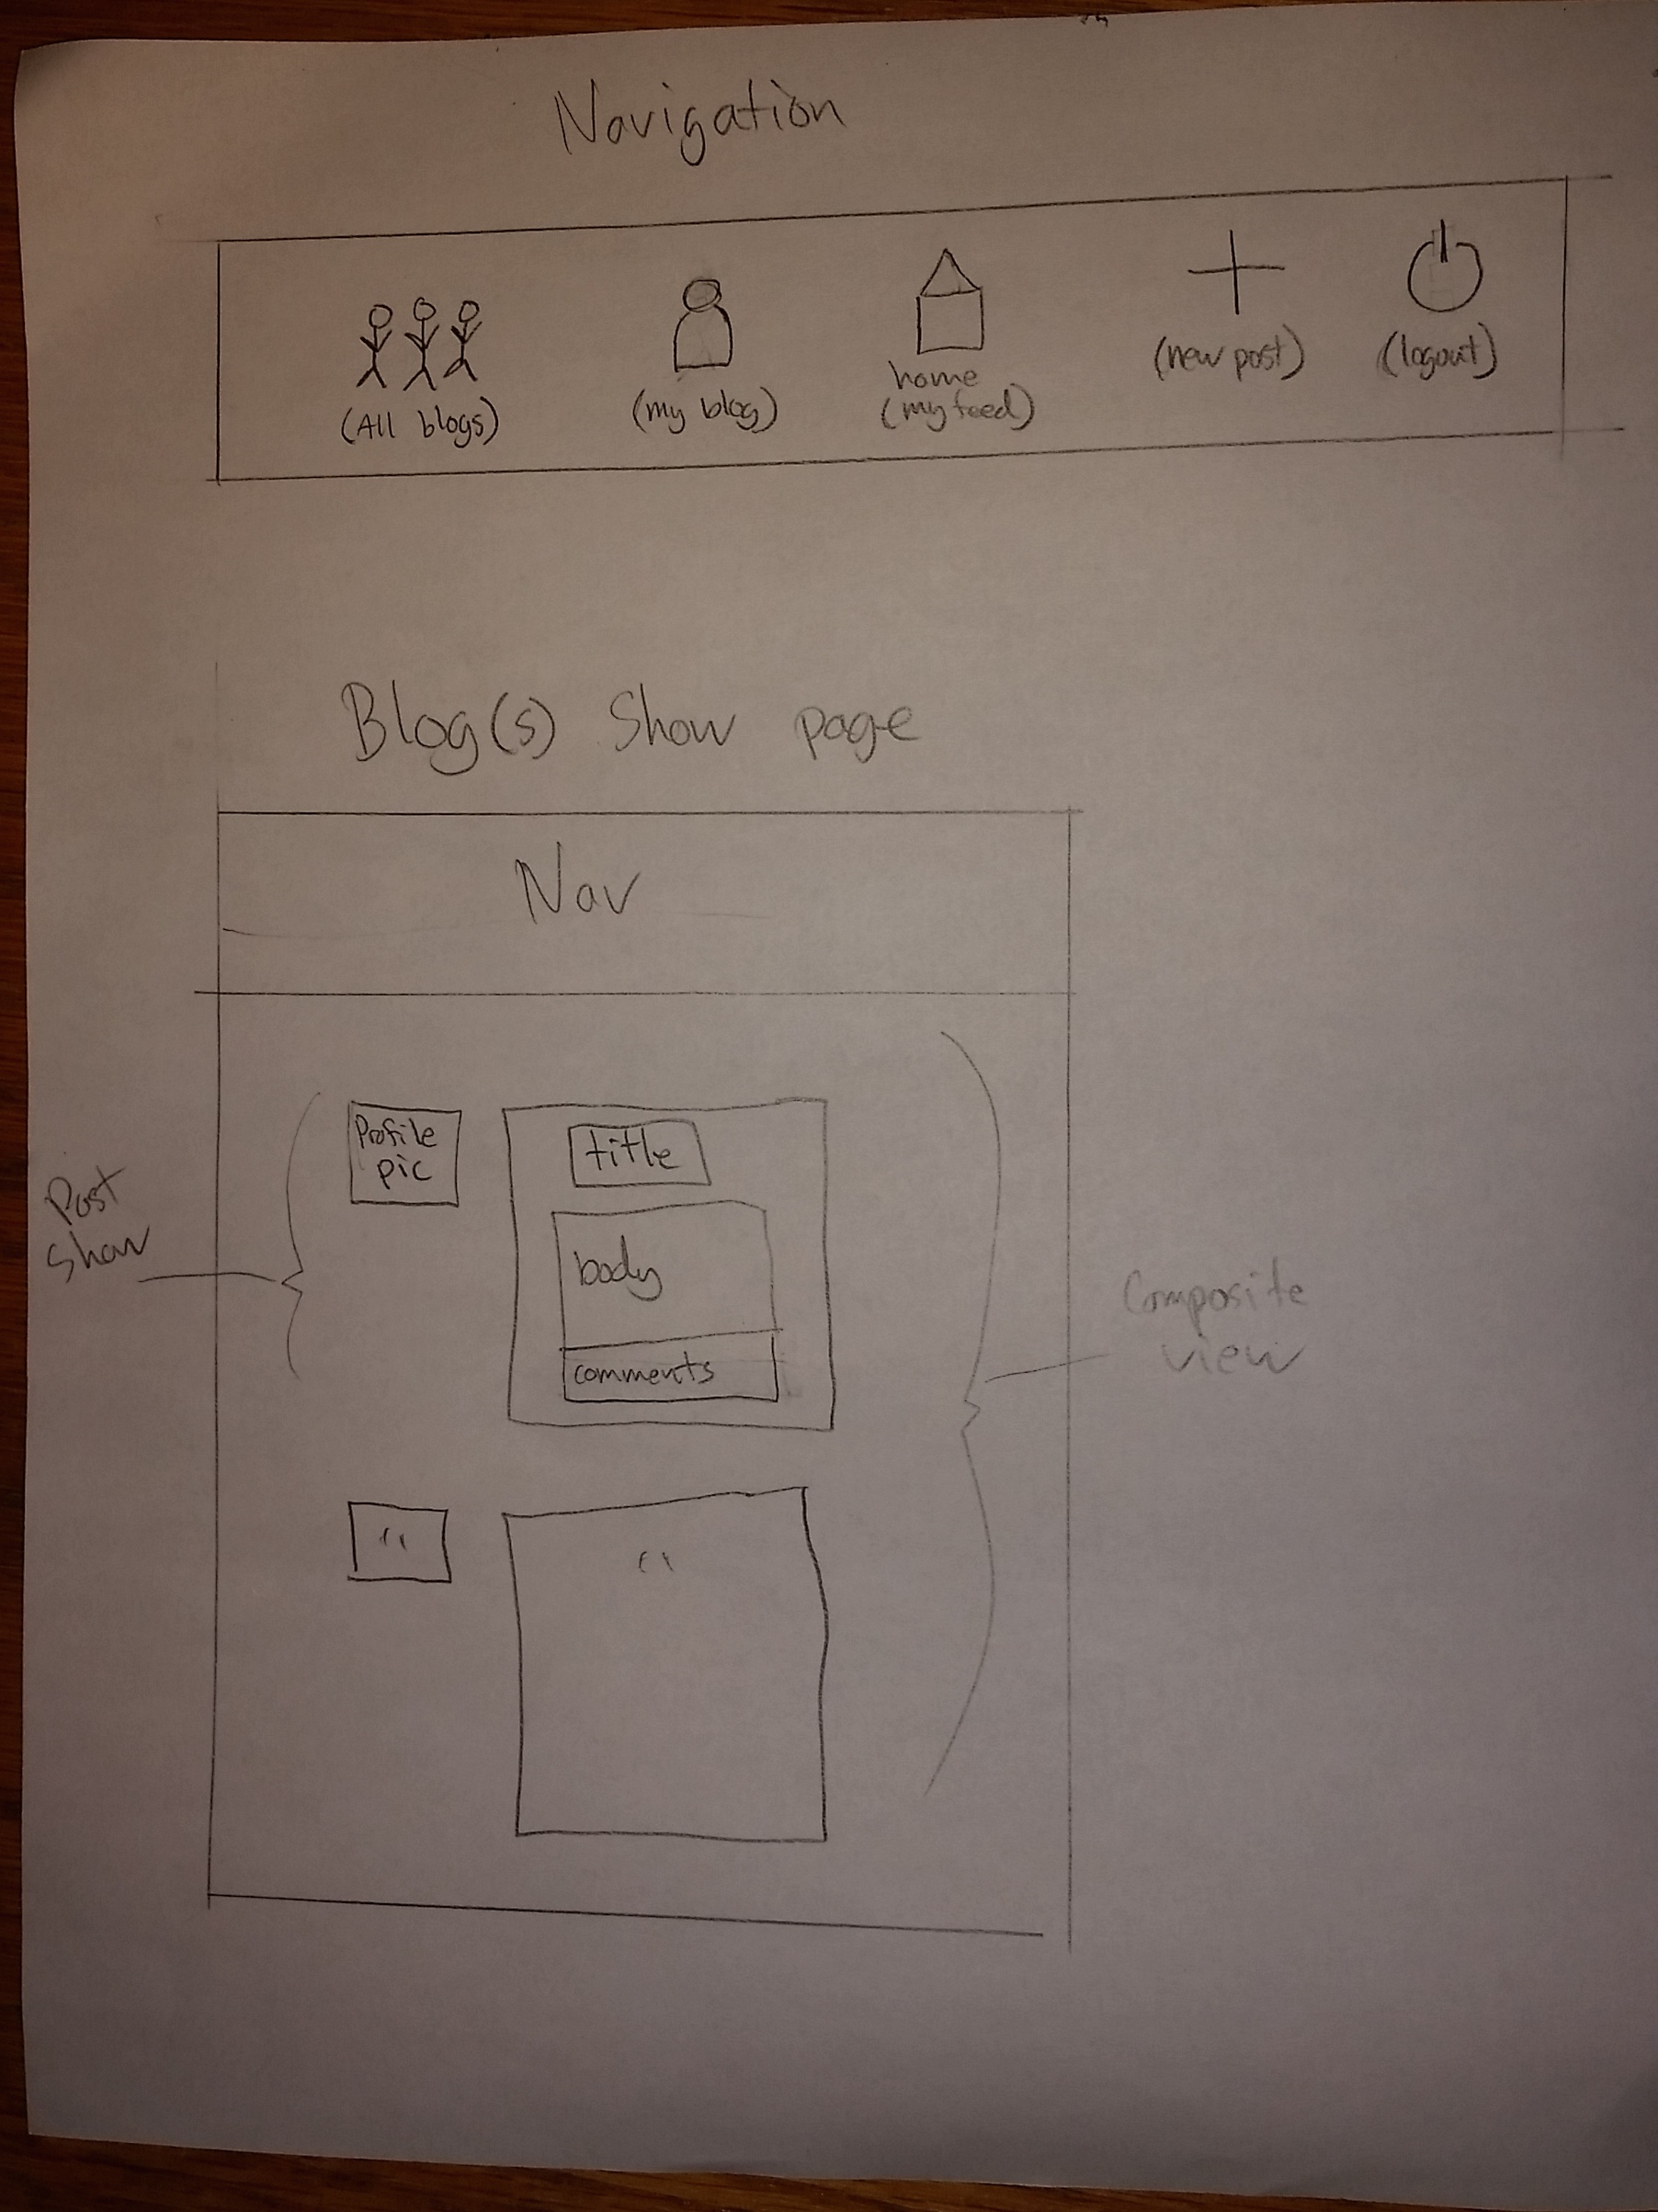 Navigation
(All blogs)
(my blog)
home
(my feed)
(new post)
(logout)
Blog(s) Show page
Nav
Profile
pic
title
body
comments
Post
Show
Composite
view
"
"